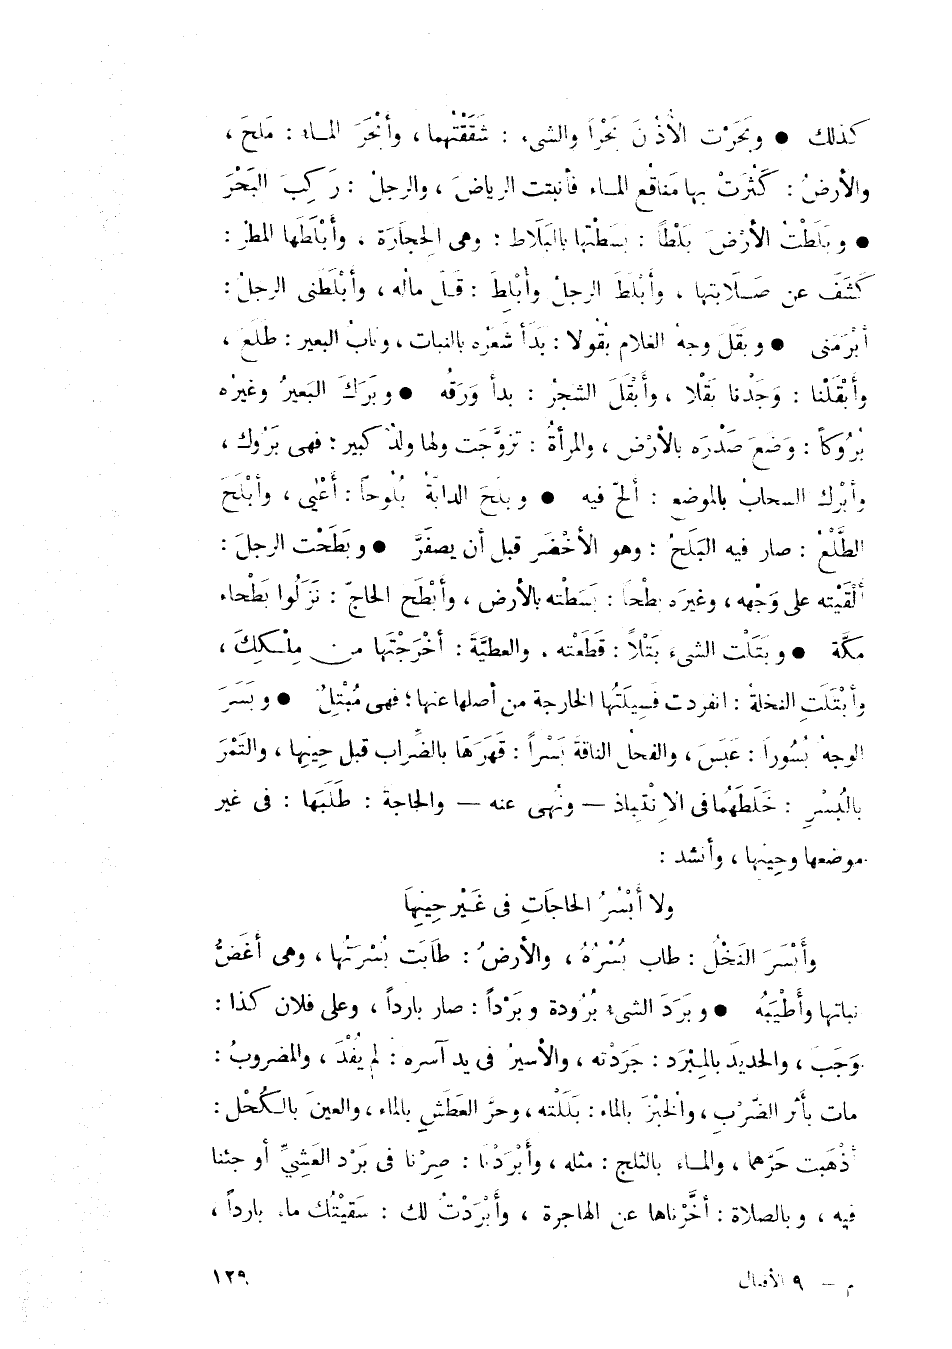 كذلك ● وبَحَرْت الأُذْنَ بَحْراً والشىء : شَقَقْتُهما ، وأَبْحَرَ الماء : مَلحَ ،
والأرضُ : كَثُرَتْ بها مَناقع الماء فأنبتت الرياضَ ، والرجلُ : رَكِبَ البَحْرَ
● وبَلَطْتُ الأرْضَ بَلْطاً : بسَطْتها بالبَلَاط : وهى الحِجارَة ، وأَبْلَطَها المطرُ :
كَشَفَ عن صَلَابتها ، وأَبْلَطَ الرجلُ وأُبْلِطَ : قَلَّ مالُه ، وأَبْلَطَنى الرجلُ :
أَبْرَمَنى ● وبَقَلَ وجهُ الغلام بُقُولا : بَدَأ شَعْرُه بالنبات ، ونابُ البعير : طَلَعَ ،
وأَبْقَلْنا : وَجَدْنا بَقْلا ، وأَبْقَلَ الشجرُ : بدأ وَرَقُه ● وبَرَكَ البَعيرُ وغيرُه
بُرُوكاً : وَضَعَ صَدْرَه بالأرْض ، والمرأةُ : تزوَّجَت ولها ولدٌ كبير ؛ فهى بَرُوك ،
وأبْرك السحابُ بالموضع : ألحّ فيه ● وبلَحَ الدابّةُ بُلُوحاً : أَعْيى ، وأَبْلَحَ
الطَّلْعُ : صار فيه البَلَحُ : وهو الأخْضَر قبل أن يصفَرَّ ● وبَطَحْت الرجلَ :
أَلْقَيْته على وَجْهه ، وغيرَه بطْحاً : بَسَطْته بالأرض ، وأَبْطَح الحاجّ : نَزَلُوا بَطْحاء
مكَّة ● وبَتَلْت الشىءَ بَتْلاً : قَطَعْته . والعطيَّةَ : أخْرَجْتَها من مِلْكِكَ ،
وأَبْتَلَتِ النخلةُ : انفردت فَسِيلَتُها الخارجة من أصلها عنها ؛ فهى مُبْتِلٌ ● وبَسَرَ
الوجهُ بُسُوراً : عَبَسَ ، والفحلُ الناقةَ بَسْراً : قَهَرَهَا بالضِّراب قبل حِينِها ، والتَمْرَ
بالبُسْرِ : خَلَطَهُما فى الاِنْتِباذ — ونُهِى عنه — والحاجةَ : طَلَبَها : فى غير
موضعها وحِينِها ، وأنشد :
ولا أَبْسُرُ الحاجَاتِ فى غَيْر حِينِهاَ
وأَبْسَرَ النَخْلُ : طاب بُسْرُهُ ، والأرضُ : طَابَت بُسْرَتُها ، وهى أغَضُّ
نباتها وأَطْيَبُه ● وبَرَدَ الشىءُ بُرُودة وبَرْداً : صار بارداً ، وعلى فلان كذا :
وَجَبَ ، والحديدَ بالمِبْرَد : جَرَدْته ، والأسيرُ فى يد آسره : لم يُفْدَ ، والمضروبُ :
مات بأَثر الضَّرْبِ ، والخبْزَ بالماء : بَلَلْته ، وحرَّ العَطَشِ بالماء ، والعينَ بالكُحْل :
أَذْهَبت حَرّهما ، والماء بالثلج : مثله ، وأَبْرَدْنا : صِرْنا فى بَرْد العَشِيِّ أو جئنا
فيه ، وبالصلاة : أخَّرْناها عن الهاجرة ، وأَبْرَدْتُ لك : سَقَيْتُك ماء بارداً ،
م — ٩ الأفعال
١٢٩